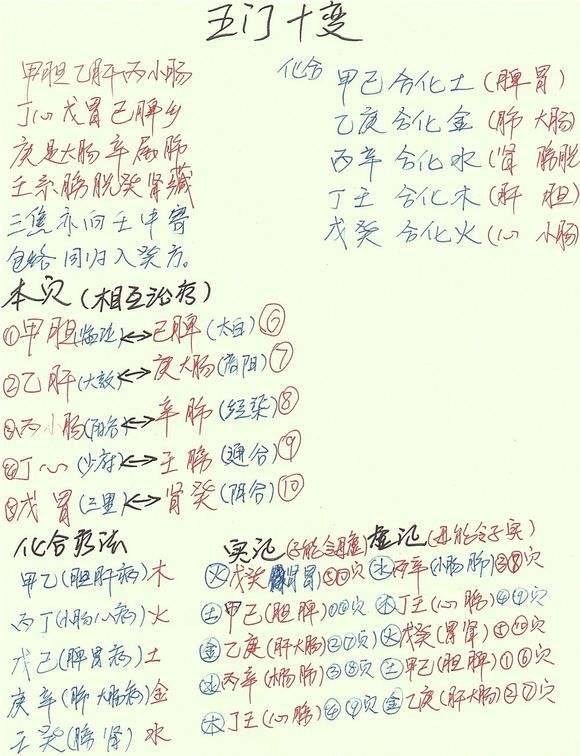 五门十变
甲胆乙肝丙小肠
丁心戊胃己脾乡
庚是大肠辛属肺
壬系膀胱癸肾藏
三焦亦向壬中寄
包络同归入癸方。
化合
甲己合化土(脾胃)
乙庚合化金(肺大肠)
丙辛合化水(肾膀胱
丁壬合化木(肝胆)
戊癸合化火(心小肠)
本穴(相互治疗)
①甲胆(临泣)↔己脾(太白)⑥
②乙肝(大敦)↔庚大肠(商阳)⑦
③丙小肠(阳谷↔辛肺(经渠)⑧
④丁心(少府)↔壬膀(通谷)⑨
⑤戊胃(三里)↔肾癸(阴谷)⑩
化合疗法
甲乙(胆肝病)木
丙丁(小肠心病)火
戊己(脾胃病)土
庚辛(肺大肠病)金
壬癸(膀肾)水
实证(子能令母虚)
火戊癸(肾胃)⑤⑩穴
土甲己(胆脾)①⑥穴
金乙庚(肝大肠)②⑦穴
水丙辛(小肠肺)③⑧穴
木丁壬(心膀)④⑨穴
虚证(母能令子实)
水丙辛(小肠肺)③⑧穴
木丁壬(心膀)④⑨穴
火戊癸(胃肾)⑤⑩穴
土甲己(胆脾)①⑥穴
金乙庚(肝大肠)②⑦穴